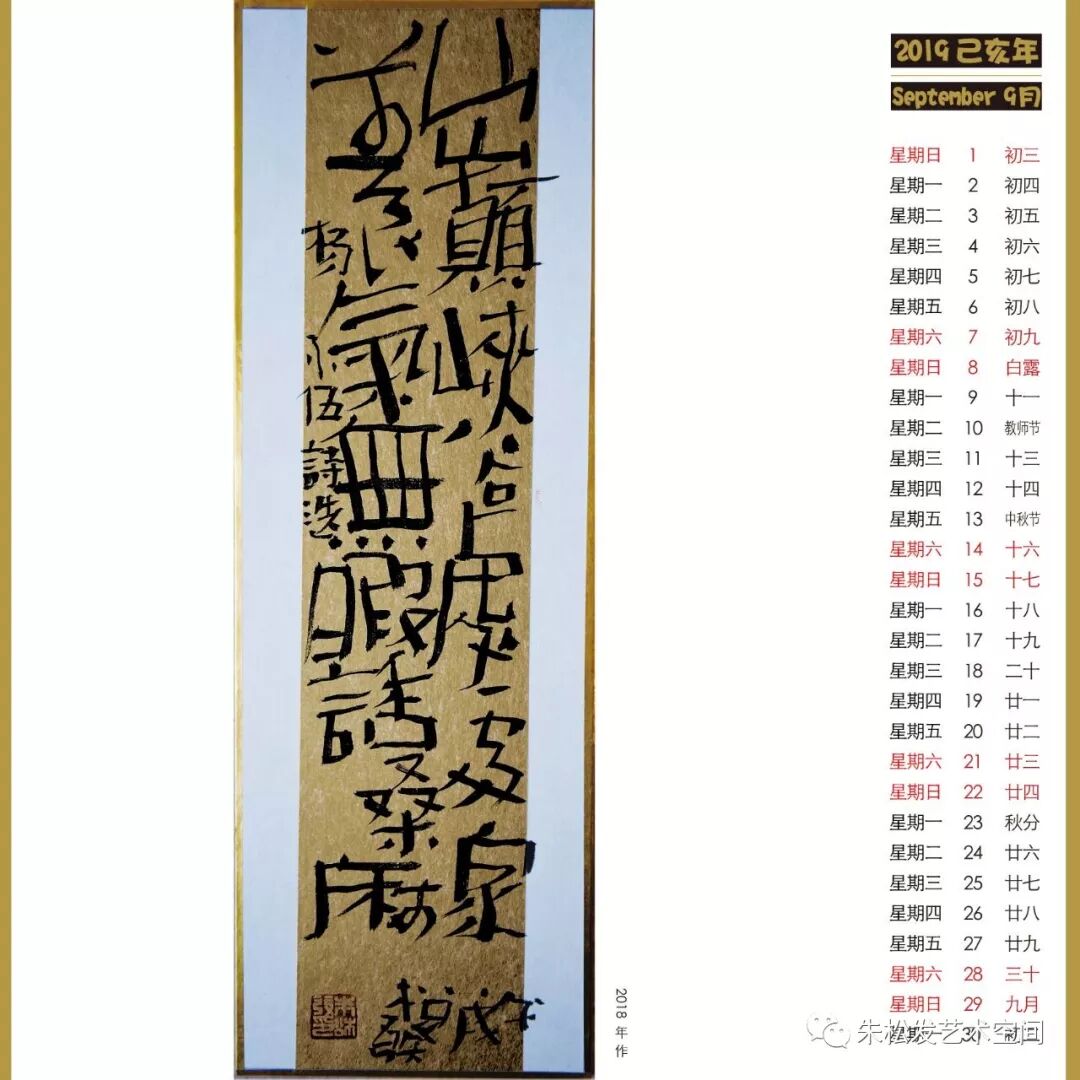 山巔峽谷處處家
氣無暇話桑麻
伍詩
松發
2018年作
2019 己亥年
September 9月
星期日 1 初三
星期一 2 初四
星期二 3 初五
星期三 4 初六
星期四 5 初七
星期五 6 初八
星期六 7 初九
星期日 8 白露
星期一 9 十一
星期二 10 教师节
星期三 11 十三
星期四 12 十四
星期五 13 中秋节
星期六 14 十六
星期日 15 十七
星期一 16 十八
星期二 17 十九
星期三 18 二十
星期四 19 廿一
星期五 20 廿二
星期六 21 廿三
星期日 22 廿四
星期一 23 秋分
星期二 24 廿六
星期三 25 廿七
星期四 26 廿八
星期五 27 廿九
星期六 28 三十
星期日 29 九月
星期一 30 初二
朱松发艺术空间